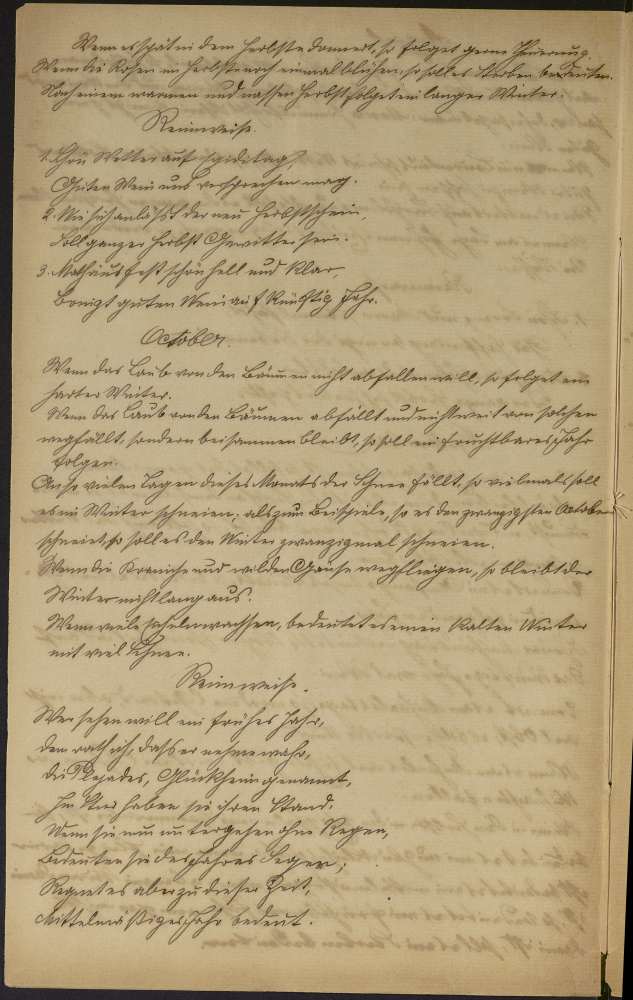 Wenn es spät in dem Herbste donnert, so folget gerne Theuerung.
Wenn die Rosen im Herbste noch einmal blühen, so soll es Sterben bedeuten.
Nach einem warmen und nassen Herbst folget ein langer Winter.
Reimweise.
1. Schön Wetter auf Egiditag,
Guten Wein uns versprechen mag.
2. Wie sich anläßt der neu Herbstschein,
Soll ganzer Herbst Gewitter sein.
3. Mathäus Fest schön hell und klar,
Bringt guten Wein auf künftig Jahr.
October.
Wenn das Laub von den Bäumen nicht abfallen will, so folget ein
harter Winter.
Wenn das Laub von den Bäumen abfällt und nicht weit von solchen
wegfällt, sondern beisammen bleibt, so soll ein fruchtbares Jahr
folgen.
An so vielen Tagen dieses Monats der Schnee fällt, so vielmals soll
es im Winter schneien; als zum Beispiele, so es den zwanzigsten October
schneiet, so soll es den Winter zwanzigmal schneien.
Wenn die Kraniche und wilden Gänse wegfliegen, so bleibt der
Winter nicht lang aus.
Wenn viele wachsen, bedeutet es einen kalten Winter
mit viel Schnee.
Reimweise.
Wer sehen will ein frühes Jahr,
dem rath ich, daß er nehme wahr,
die Plejades, Gluckhenn genannt,
Im Stier haben sie ihren Stand.
Wenn sie nun untergehen ohne Regen,
Bedeuten sie des Jahres Segen;
Regnet es aber zu dieser Zeit,
Mittelmäßiges Jahr bedeut.